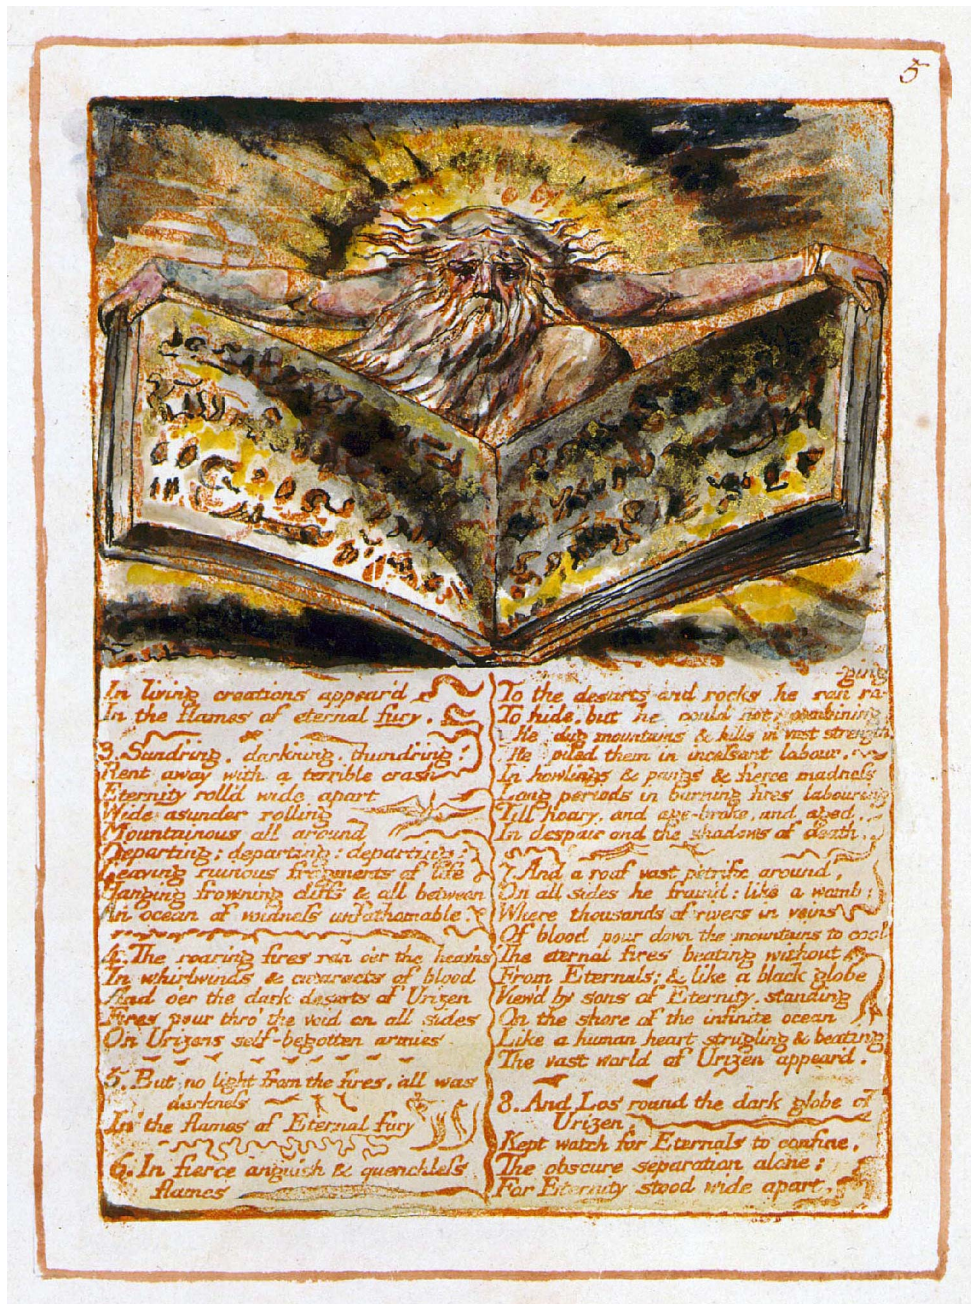 5
In living creations appear'd
In the flames of eternal fury.
3. Sundring, darkning, thundring!
Rent away with a terrible crash
Eternity roll'd wide apart
Wide asunder rolling
Mountainous all around
Departing; departing; departing:
Leaving ruinous fragments of life
Hanging frowning cliffs & all between
An ocean of voidness unfathomable
4. The roaring fires ran o'er the heav'ns
In whirlwinds & cataracts of blood
And o'er the dark desarts of Urizen
Fires pour thro' the void on all sides
On Urizens self-begotten armies
5. But no light from the fires. all was
darkness
In the flames of Eternal fury
6. In fierce anguish & quenchless
flames
To the desarts and rocks he ran ra-
ging
To hide, but he could not: combining
He dug mountains & hills in vast strength,
He piled them in incessant labour,
In howlings & pangs & fierce madness
Long periods in burning fires labouring
Till hoary, and age-broke, and aged,
In despair and the shadows of death.
7. And a roof vast petrific around,
On all sides he fram'd: like a womb;
Where thousands of rivers in veins
Of blood pour down the mountains to cool
The eternal fires beating without
From Eternals; & like a black globe
View'd by sons of Eternity, standing
On the shore of the infinite ocean
Like a human heart strugling & beating
The vast world of Urizen appear'd.
8. And Los round the dark globe of
Urizen,
Kept watch for Eternals to confine,
The obscure separation alone;
For Eternity stood wide apart,